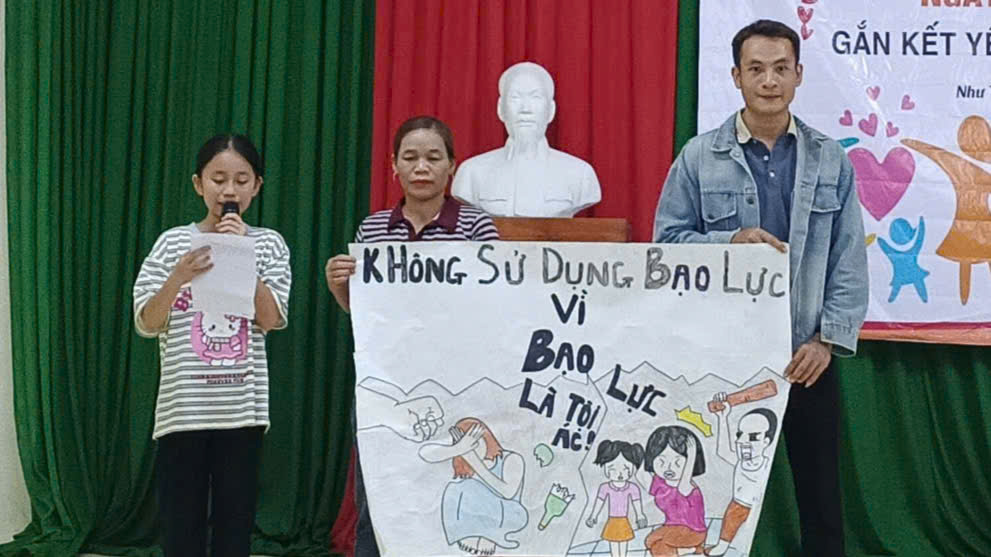 GẮN KẾT YÊ
Như
KHÔNG SỬ DỤNG BẠO LỰC
VÌ
BẠO LỰC
LÀ TỘI
ÁC!